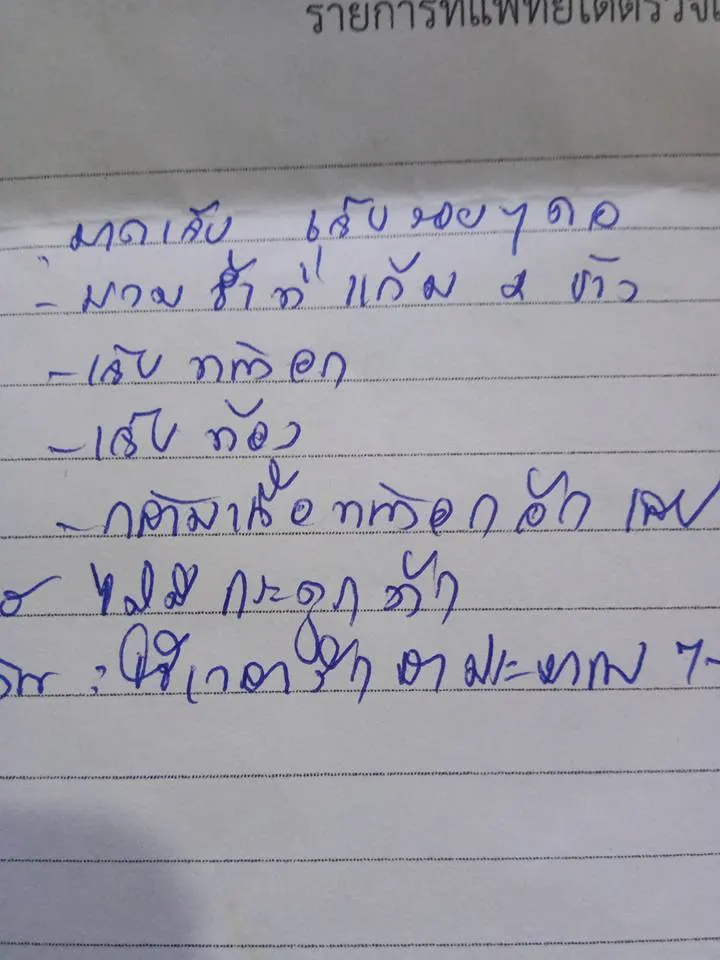 รายการที่แพทย์ได้ตรวจ
บาดเจ็บ เจ็บรอบๆ คอ
- บวมช้ำที่ แก้ม 2 ข้าง
- เจ็บ หน้าอก
- เจ็บ ท้อง
- กล้ามเนื้อ หน้าอก อักเสบ
ไม่มี กระดูก หัก
: ใช้เวลา รักษา ประมาณ 7-